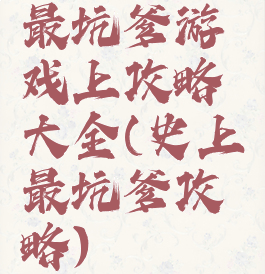 最坑爹游
戏上攻略
大全(史上
最坑爹攻
略)